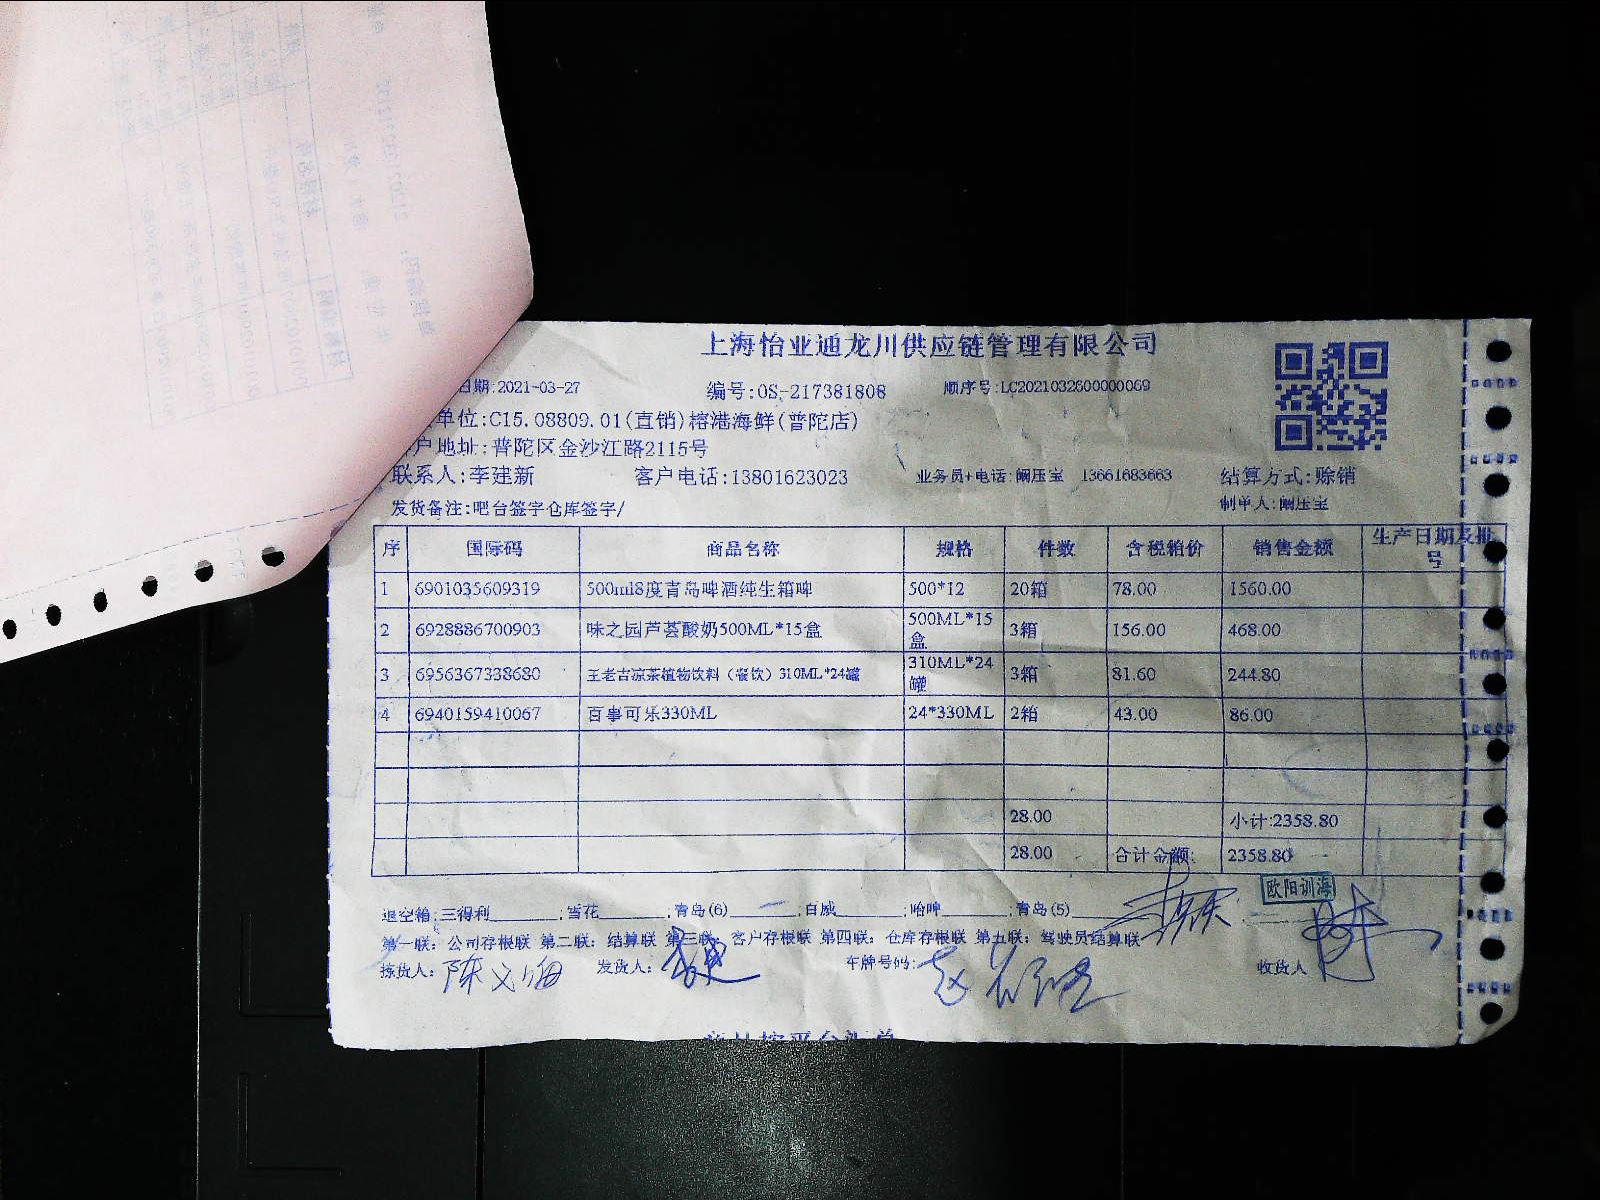 上海怡亚通龙川供应链管理有限公司
日期:2021-03-27 编号:OS-217381808 顺序号:LC2021032600000069
单位:C15.08809.01(直销)榕港海鲜(普陀店)
户地址:普陀区金沙江路2115号
联系人:李建新 客户电话:13801623023 业务员+电话:阚压宝 13661683663 结算方式:赊销
发货备注:吧台签字仓库签字/ 制单人:阚压宝
序 国际码 商品名称 规格 件数 含税箱价 销售金额 生产日期及批号
1 6901035609319 500ml8度青岛啤酒纯生箱啤 500*12 20箱 78.00 1560.00
2 6928886700903 味之园芦荟酸奶500ML*15盒 500ML*15盒 3箱 156.00 468.00
3 6956367338680 王老吉凉茶植物饮料（餐饮）310ML*24罐 310ML*24罐 3箱 81.60 244.80
4 6940159410067 百事可乐330ML 24*330ML 2箱 43.00 86.00
28.00 小计:2358.80
28.00 合计金额: 2358.80
欧阳训海
退空箱:三得利______;雪花______;青岛(6)______;百威______;哈啤______;青岛(5)
第一联：公司存根联 第二联：结算联 第三联：客户存根联 第四联：仓库存根联 第五联：驾驶员结算联
拣货人: 陈义 发货人: 车牌号码: 收货人